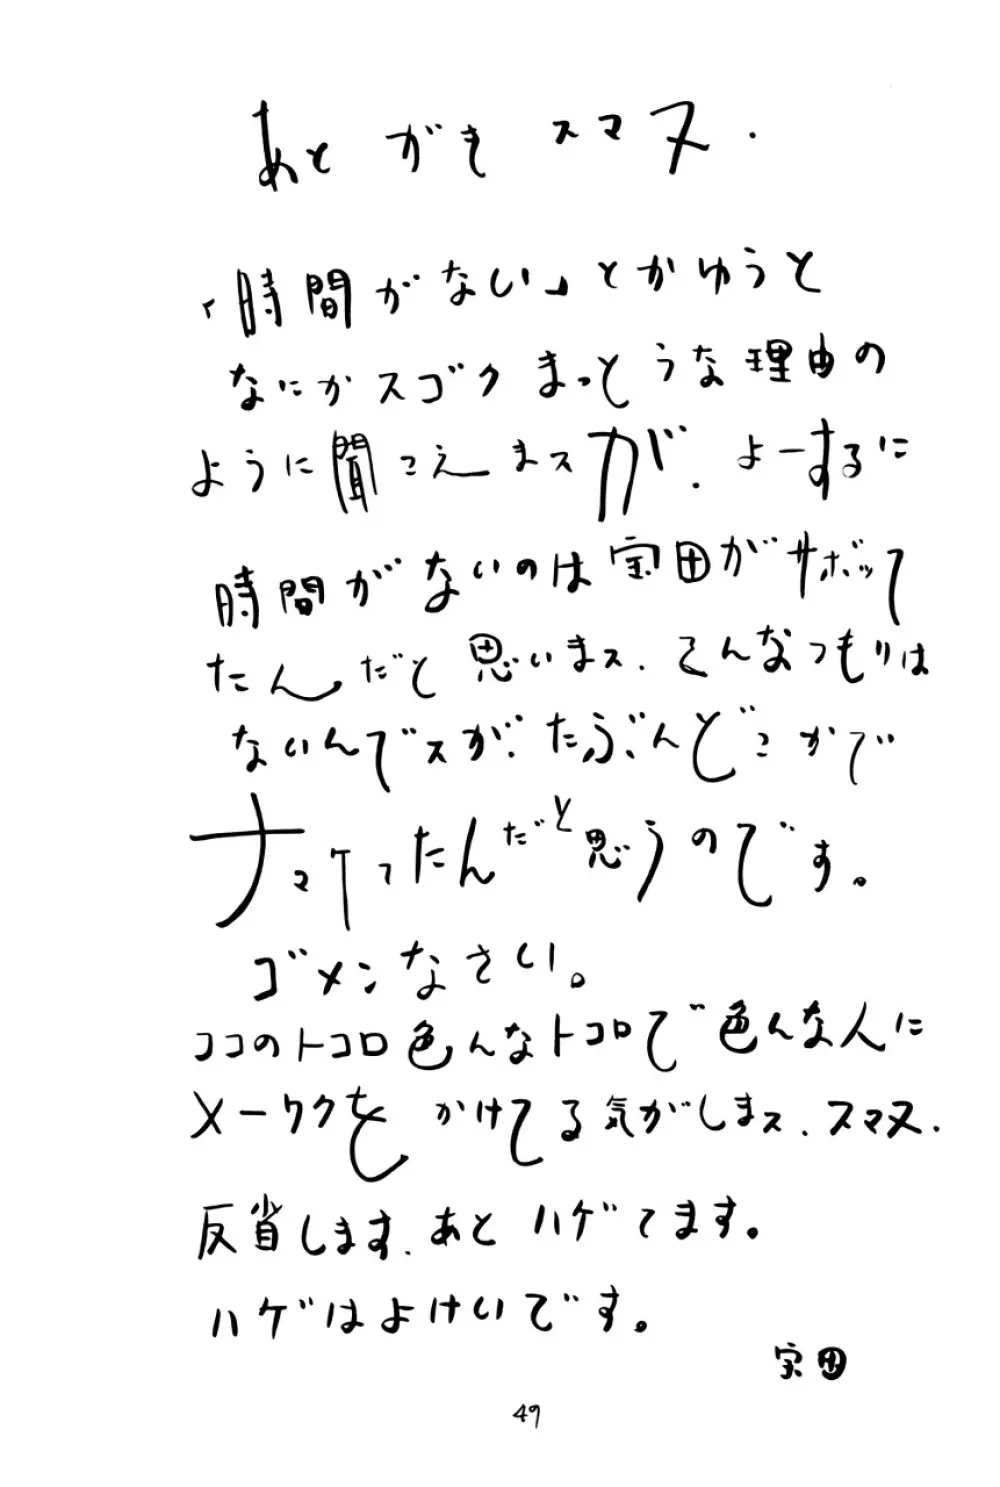 あとがきスマヌ.
「時間がない」とかゆうと
なにかスゴクまっとうな理由の
ように聞こえまスが.よーするに
時間がないのは宝田がサボって
たんだと思いまス.そんなつもりは
ないんでスが.たぶんどこかで
ナマケってたんだと思うのです。
ゴメンなさい。
ココのトコロ色んなトコロで色んな人に
メーワクをかけてる気がしまス.スマヌ.
反省します.あとハゲてます。
ハゲはよけいです。
宝田
49